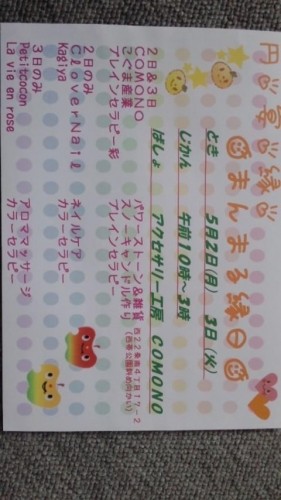 円 宴 縁
まんまる縁日
どき 5月2日(月) 3日(火)
じかん 午前10時～3時
ばしょ アクセサリー工房 COMONO
西22条南4丁目17-2
2日&3日
COMONO パワーストーン&雑貨
こぐま産業 スノーキャンドル作り
ブレインセラピー彩 ブレインセラピー
2日のみ
CloverNail ネイルケア
Kagiya カラーセラピー
3日のみ
Petitcocon アロママッサージ
La vie en rose カラーセラピー